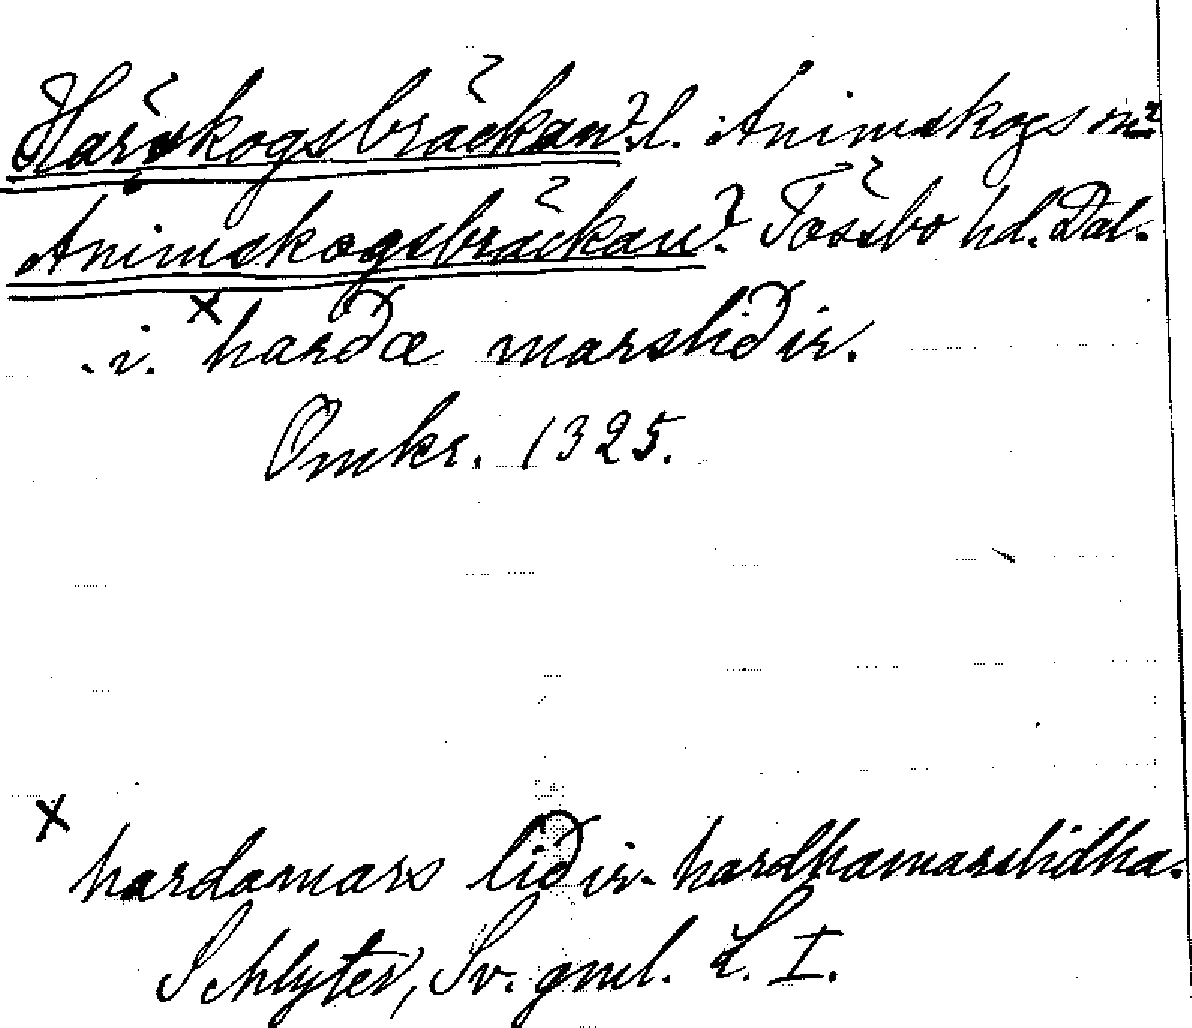 Harskogsbräckan? l. Animskogs sn?
Animskogsbräckan? Tössbo hd. Dal.
i. ˣharðæ marsliðir.
Omkr. 1325.
ˣ
hardamars liðir. hardhamarslidha.
Schlyter, Sv. gml. L. I.